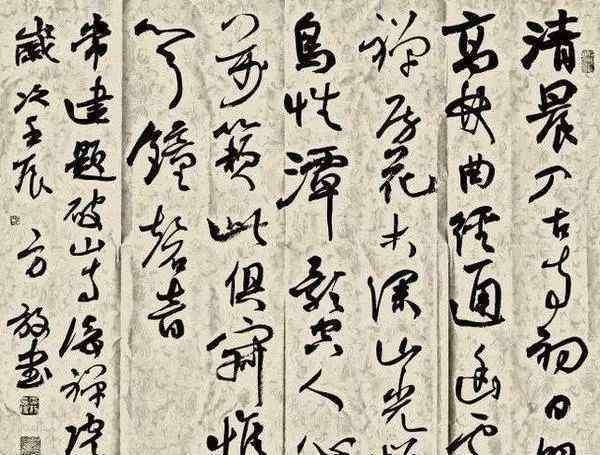 清晨入古寺初日照
高林曲徑通幽處
禪房花木深山光悦
鳥性潭影空人心
萬籟此俱寂惟
聞鐘磬音
常建題破山寺後禪院
歲次壬辰 方放書